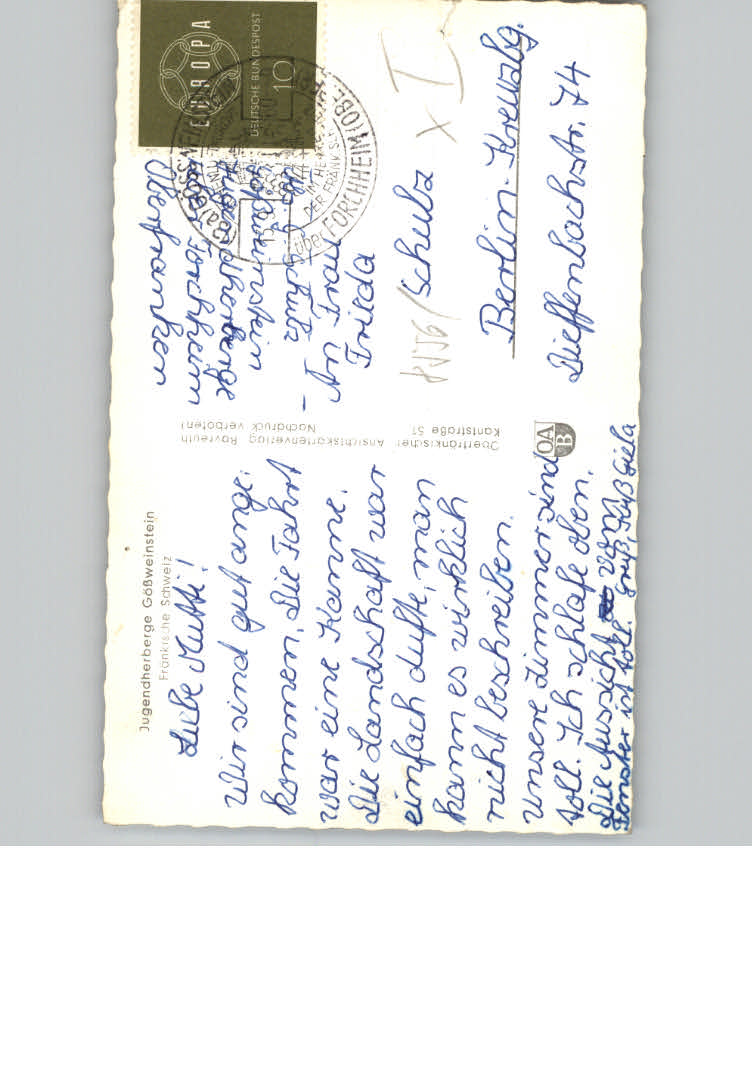 Jugendherberge Gößweinstein
Fränkische Schweiz
Liebe Mutti!
Wir sind gut ange-
kommen. Die Fahrt
war eine Kanne.
Die Landschaft war
einfach dufte, man
kann es wirklich
nicht beschreiben.
Unsere Zimmer sind
toll. Ich schlafe oben.
Die Aussicht vom
Fenster ist toll. Gruß, Kuß Giela
Oberfränkischer Ansichtskartenverlag Bayreuth
Kantstraße 51 Nachdruck verboten!
OA
B
EUROPA
DEUTSCHE BUNDESPOST
10
über FORCHHEIM (OBE
DER FRÄNK. S
Schulz
Gößweinstein
Jugendherberge
Forchheim
Oberfranken
An Frau
Frieda
Schulz
Berlin-Kreuzbg.
Dieffenbachstr. 74
x I